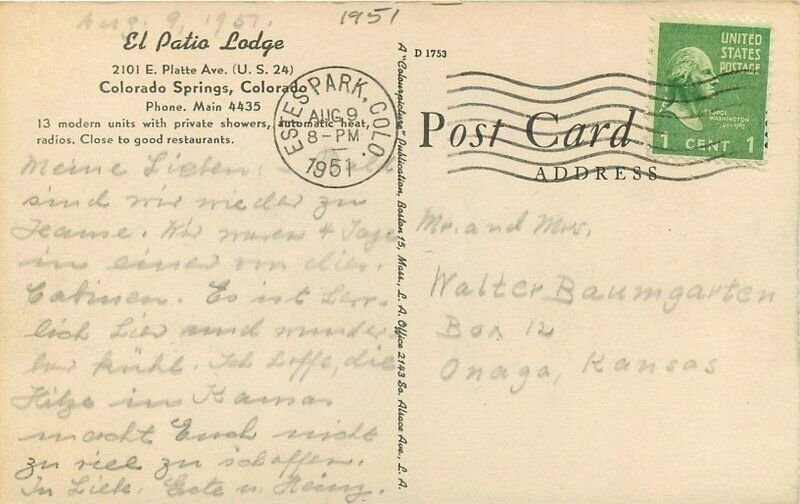 Aug. 9, 1951.
1951
El Patio Lodge
2101 E. Platte Ave. (U. S. 24)
Colorado Springs, Colorado
Phone. Main 4435
13 modern units with private showers, automatic heat,
radios. Close to good restaurants.
Meine Lieben: Bald
sind wir wieder zu
Hause. Wir waren 4 Tage
in einer von dies.
Cabinen. Es ist herr-
lich hier und wunder-
bar kühl. Ich hoffe, die
Hitze in Kansas
macht Euch nicht
zu viel zu schaffen.
In Liebe, u. Heinz.
ESTES PARK, COLO.
AUG 9
8-PM
1951
A "Colourpicture" Publication, Boston 15, Mass., L. A. Office 2143 So. Alsace Ave., L. A.
D 1753
UNITED
STATES
POSTAGE
GEORGE
WASHINGTON
1 CENT 1
Post Card
ADDRESS
Mr. and Mrs.
Walter Baumgarten
Box 12
Onaga, Kansas